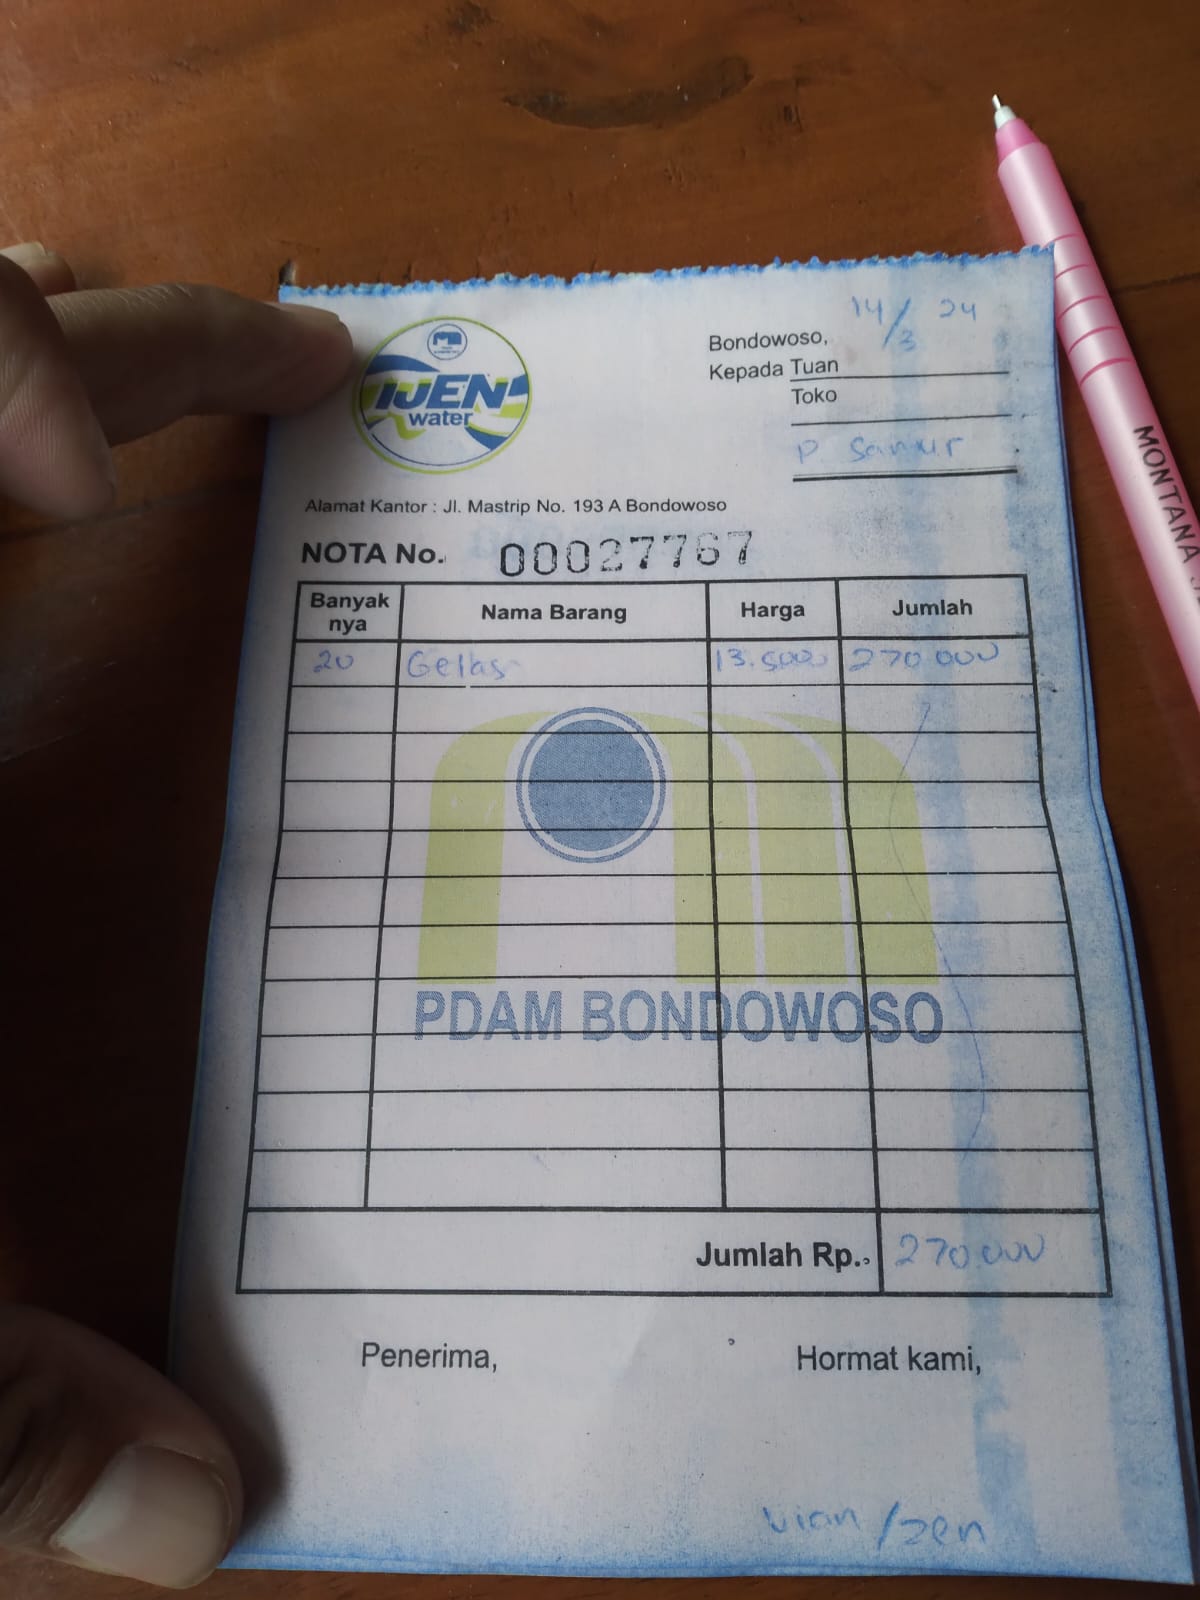 IJEN
water
Bondowoso, 14/3 24
Kepada Tuan
Toko
P. Sanur
Alamat Kantor : Jl. Mastrip No. 193 A Bondowoso
NOTA No. 00027767
Banyak nya Nama Barang Harga Jumlah
20 Gelas 13.5000 270.000
PDAM BONDOWOSO
Jumlah Rp. 270.000
Penerima, Hormat kami,
vian /zen
MONTANA